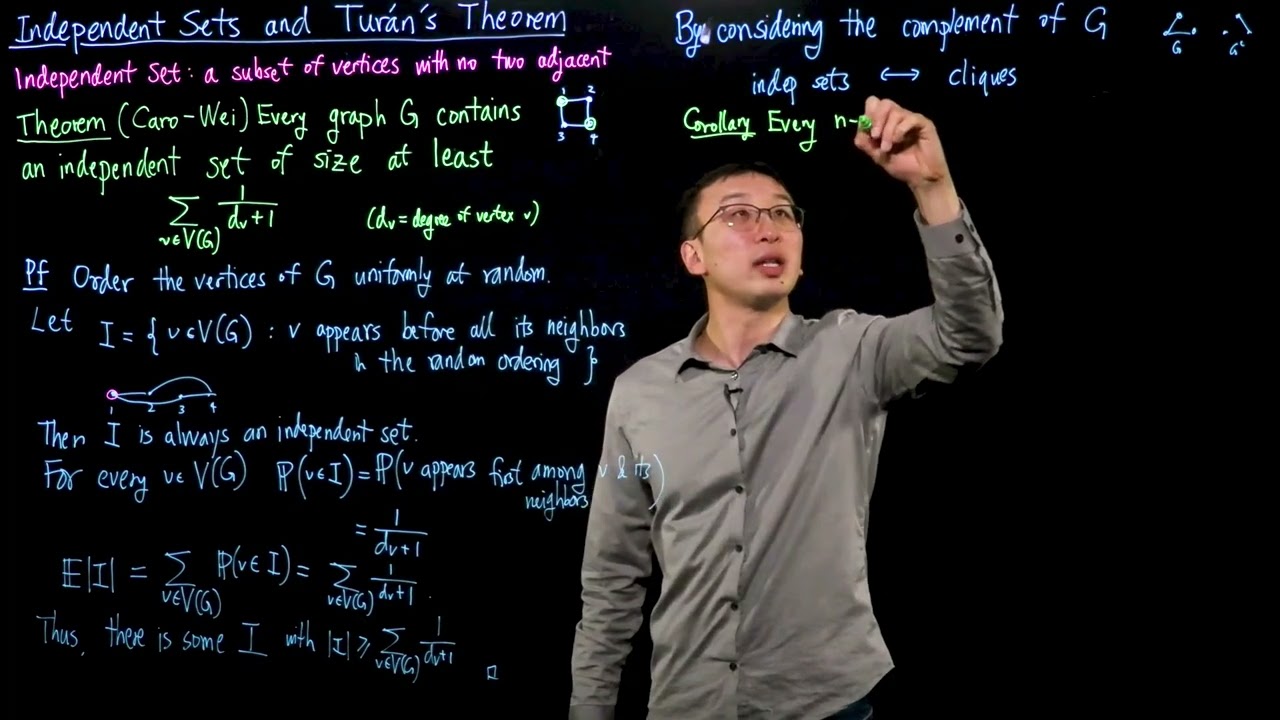 Independent Sets and Turán's Theorem
Independent Set: a subset of vertices with no two adjacent
Theorem (Caro-Wei) Every graph G contains
an independent set of size at least
∑_{v∈V(G)} 1/(d_v+1) (d_v = degree of vertex v)
1 2
3 4
Pf Order the vertices of G uniformly at random.
Let I = { v∈V(G) : v appears before all its neighbors
in the random ordering }
1 2 3 4
Then I is always an independent set.
For every v∈V(G) ℙ(v∈I) = ℙ(v appears first among v & its
neighbors)
= 1/(d_v+1)
𝔼|I| = ∑_{v∈V(G)} ℙ(v∈I) = ∑_{v∈V(G)} 1/(d_v+1).
Thus, there is some I with |I| ≥ ∑_{v∈V(G)} 1/(d_v+1) □
By considering the complement of G
G G^c
indep sets ↔ cliques
Corollary Every n-